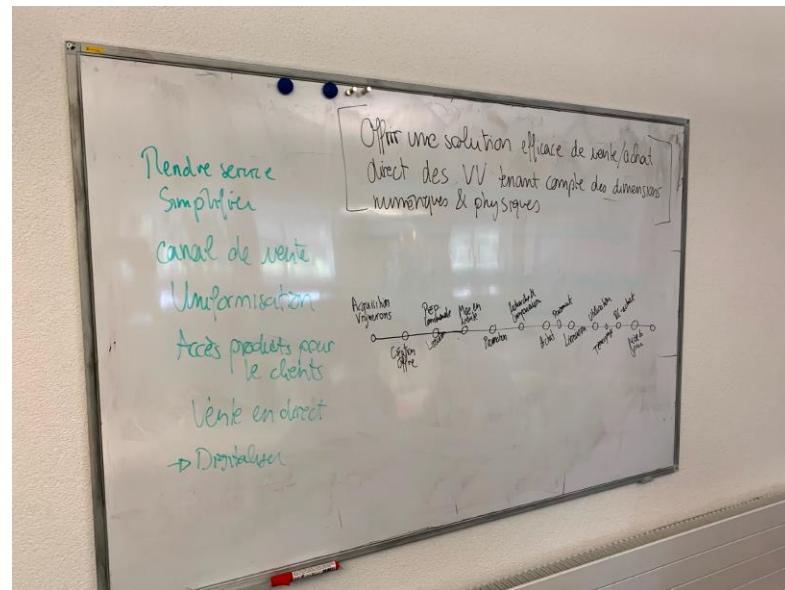 Rendre service
Simplifier
canal de vente
Uniformisation
Accès produits pour
le clients
Vente en direct
→ Digitaliser
Offrir une solution efficace de vente/achat
direct des VV tenant compte des dimensions
numériques & physiques
Acquisition
Vignerons
Création
offre
Prep
Commande
Mise en
Promotion
Comparaison
Achat
Paiement
Livraison
Utilisation
Ré-achat